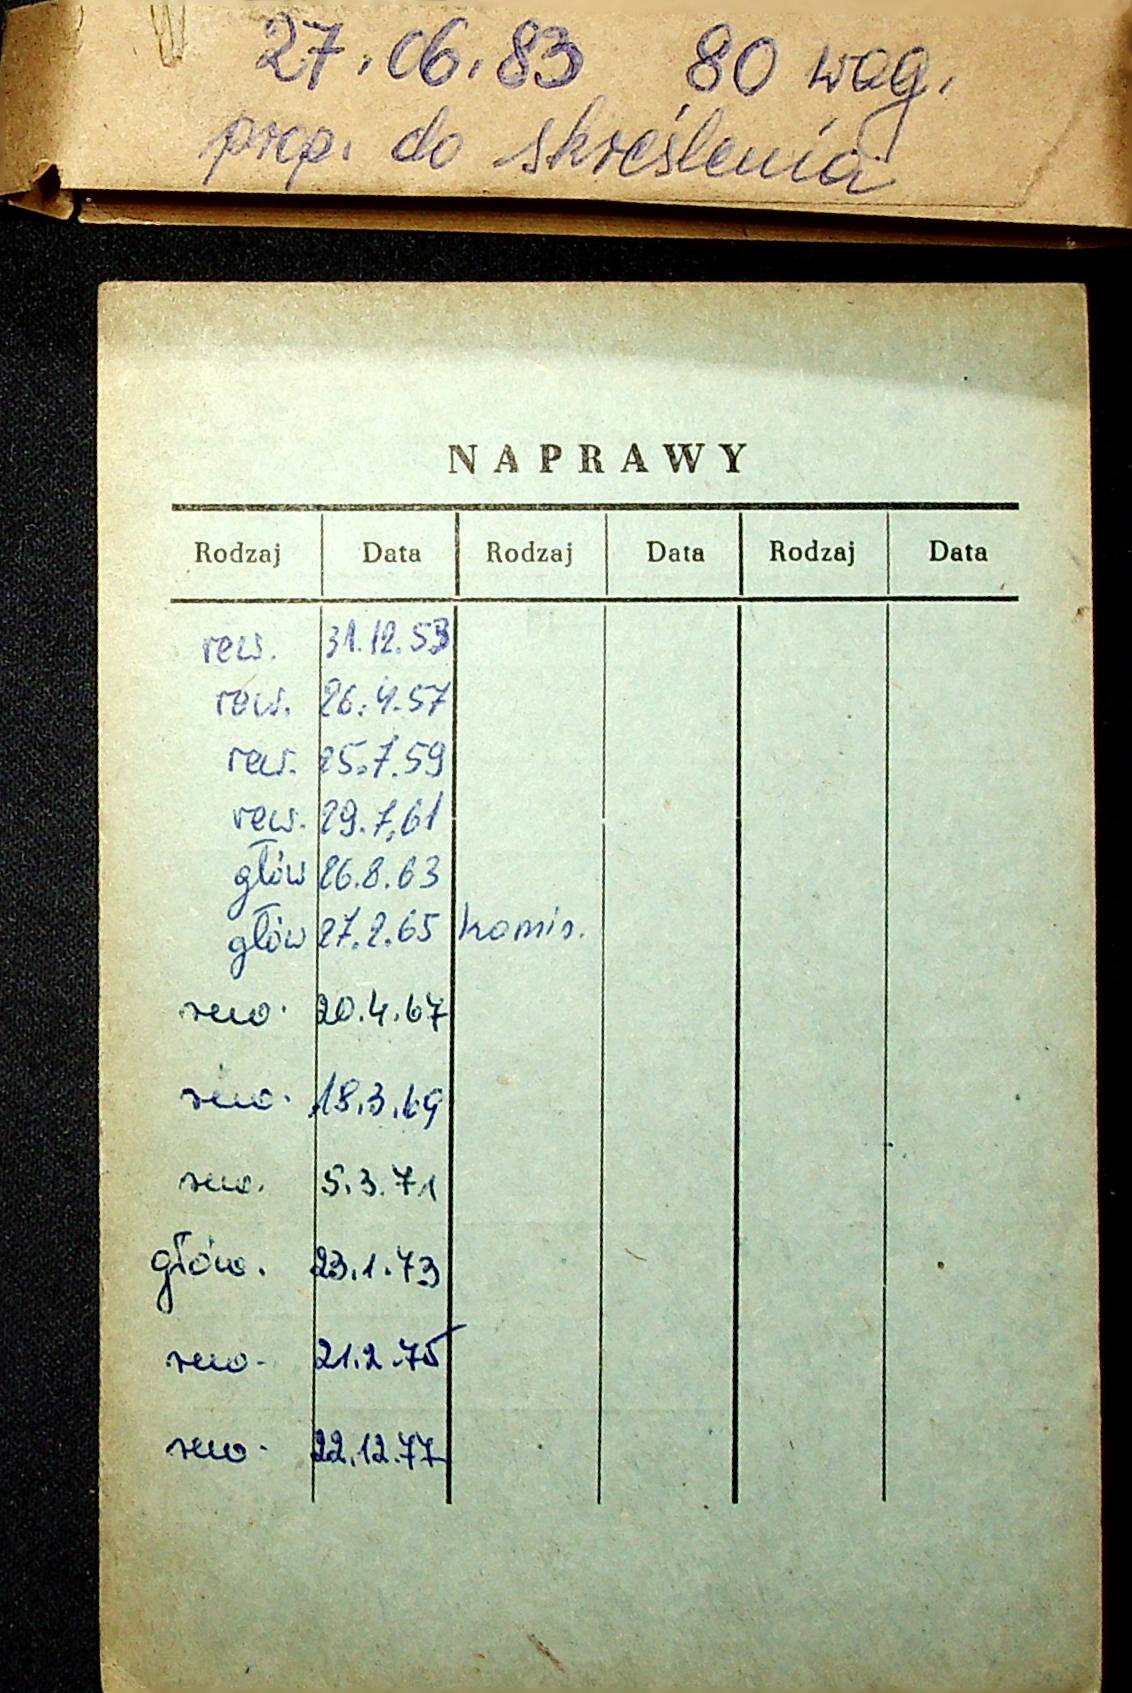 27.06.83 80 wag.
prop. do skreślenia
NAPRAWY
Rodzaj Data Rodzaj Data Rodzaj Data
rew. 31.12.53
rew. 26.4.57
rew. 25.7.59
rew. 29.7.61
głów 26.8.63
głów 27.2.65 komis.
rew. 20.4.67
rew. 18.3.69
rew. 5.3.71
głów. 23.1.73
rew. 21.2.75
rew. 22.12.77